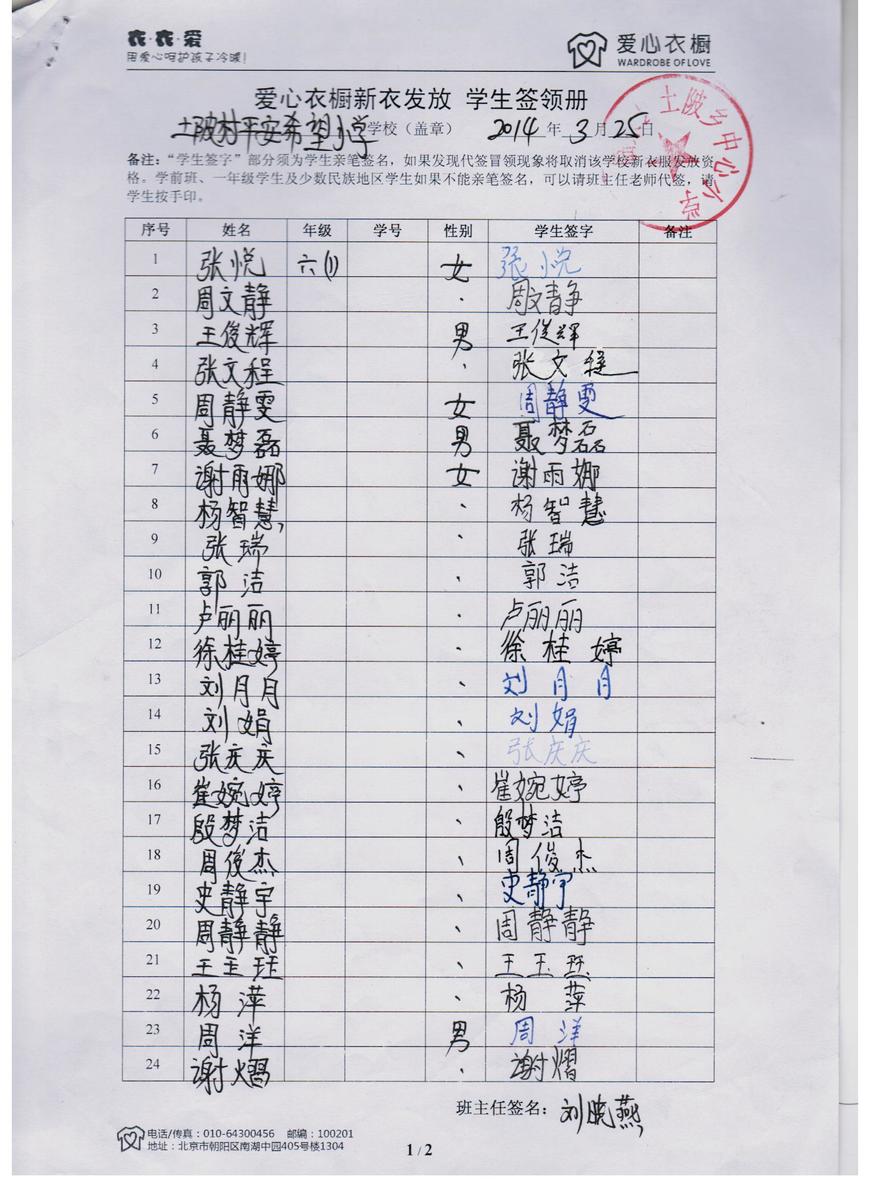 衣·衣·爱
用爱心呵护孩子冷暖!
爱心衣橱
WARDROBE OF LOVE
爱心衣橱新衣发放 学生签领册
土陂村平安希望小学学校（盖章） 2014年3月25日
土陂乡中心小学
备注：“学生签字”部分须为学生亲笔签名，如果发现代签冒领现象将取消该学校新衣服发放资
格。学前班、一年级学生及少数民族地区学生如果不能亲笔签名，可以请班主任老师代签，请
学生按手印。
序号 姓名 年级 学号 性别 学生签字 备注
1 张悦 六(1) 女 张悦
2 周文静 · 周文静
3 王俊辉 男 王俊辉
4 张文程 · 张文程
5 周静雯 女 周静雯
6 聂梦磊 男 聂梦磊
7 谢雨娜 女 谢雨娜
8 杨智慧 · 杨智慧
9 张瑞 、 张瑞
10 郭洁 、 郭洁
11 卢丽丽 · 卢丽丽
12 徐桂婷 、 徐桂婷
13 刘月月 、 刘月月
14 刘娟 、 刘娟
15 张庆庆 、 张庆庆
16 崔婉婷 、 崔婉婷
17 殷梦洁 、 殷梦洁
18 周俊杰 、 周俊杰
19 史静宇 、 史静宇
20 周静静 、 周静静
21 王玉珏 、 王玉珏
22 杨萍 、 杨萍
23 周洋 男 周洋
24 谢熠 · 谢熠
班主任签名：刘晓燕
电话/传真：010-64300456 邮编：100201
地址：北京市朝阳区南湖中园405号楼1304
1 / 2